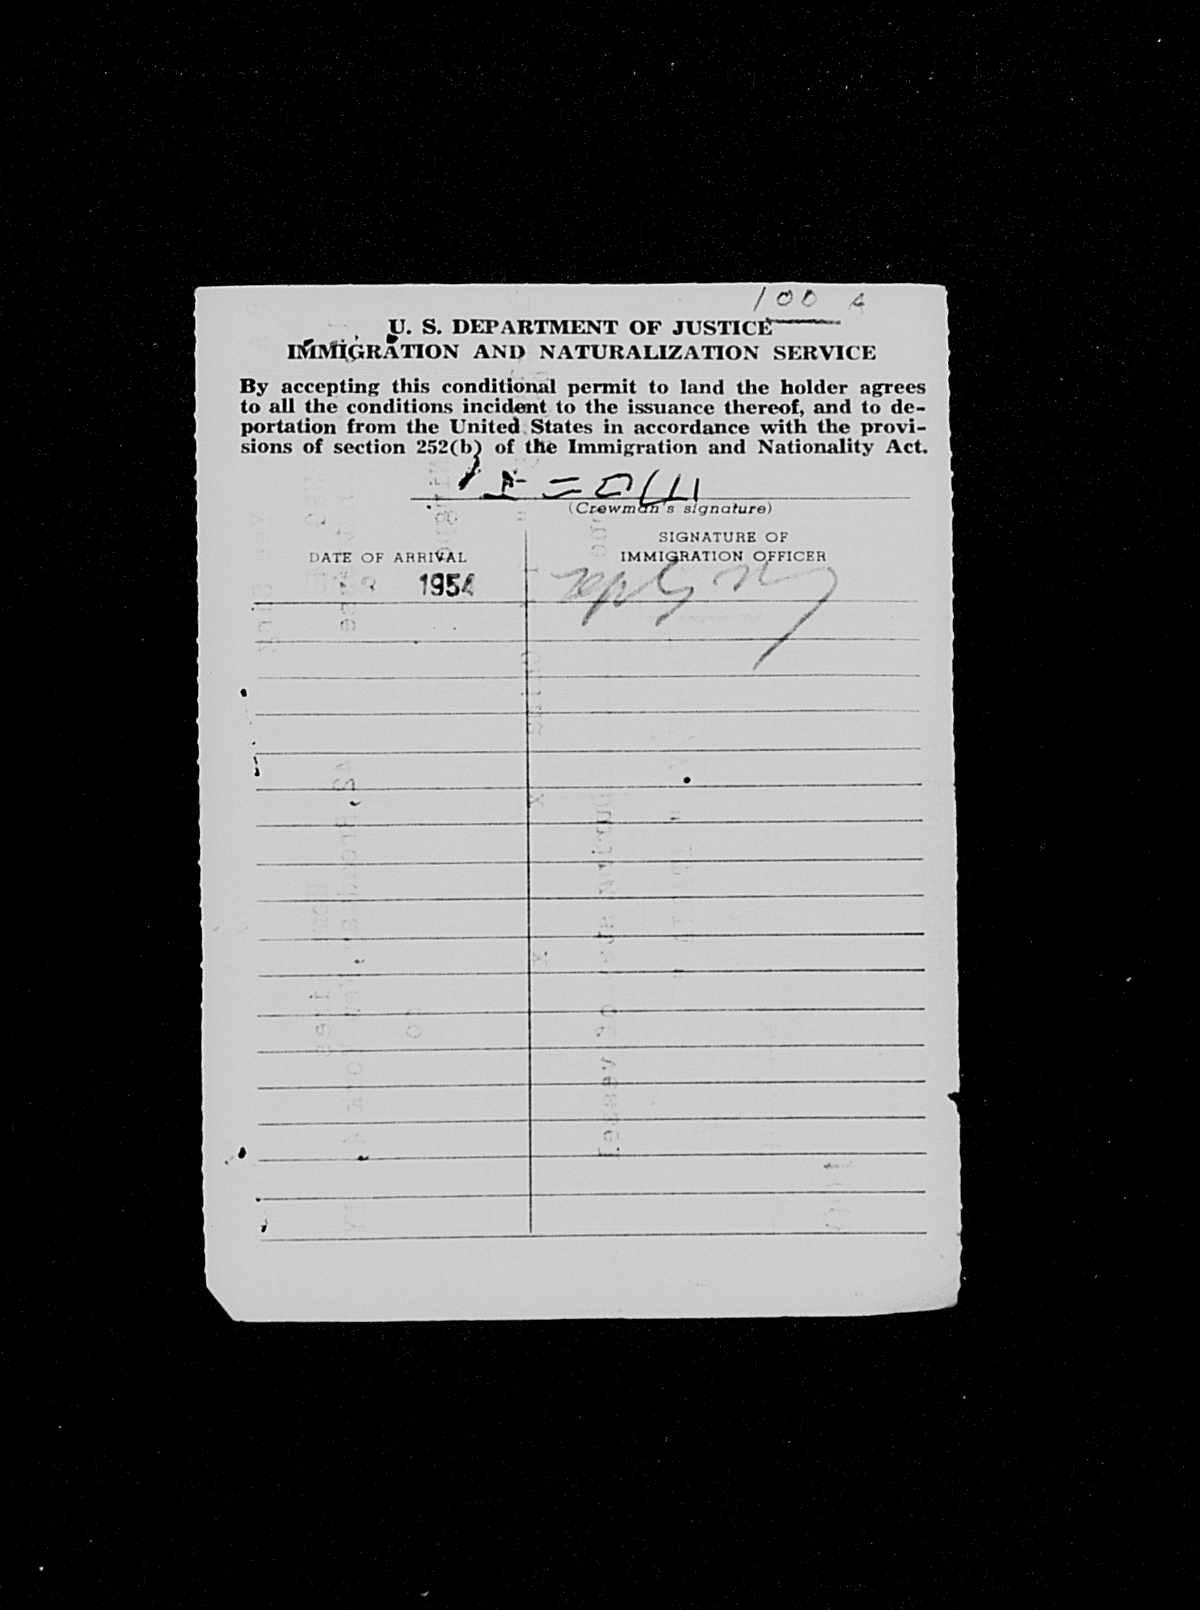 100 A
U. S. DEPARTMENT OF JUSTICE
IMMIGRATION AND NATURALIZATION SERVICE
By accepting this conditional permit to land the holder agrees
to all the conditions incident to the issuance thereof, and to de-
portation from the United States in accordance with the provi-
sions of section 252(b) of the Immigration and Nationality Act.
(Crewman's signature)
DATE OF ARRIVAL
SIGNATURE OF
IMMIGRATION OFFICER
1954